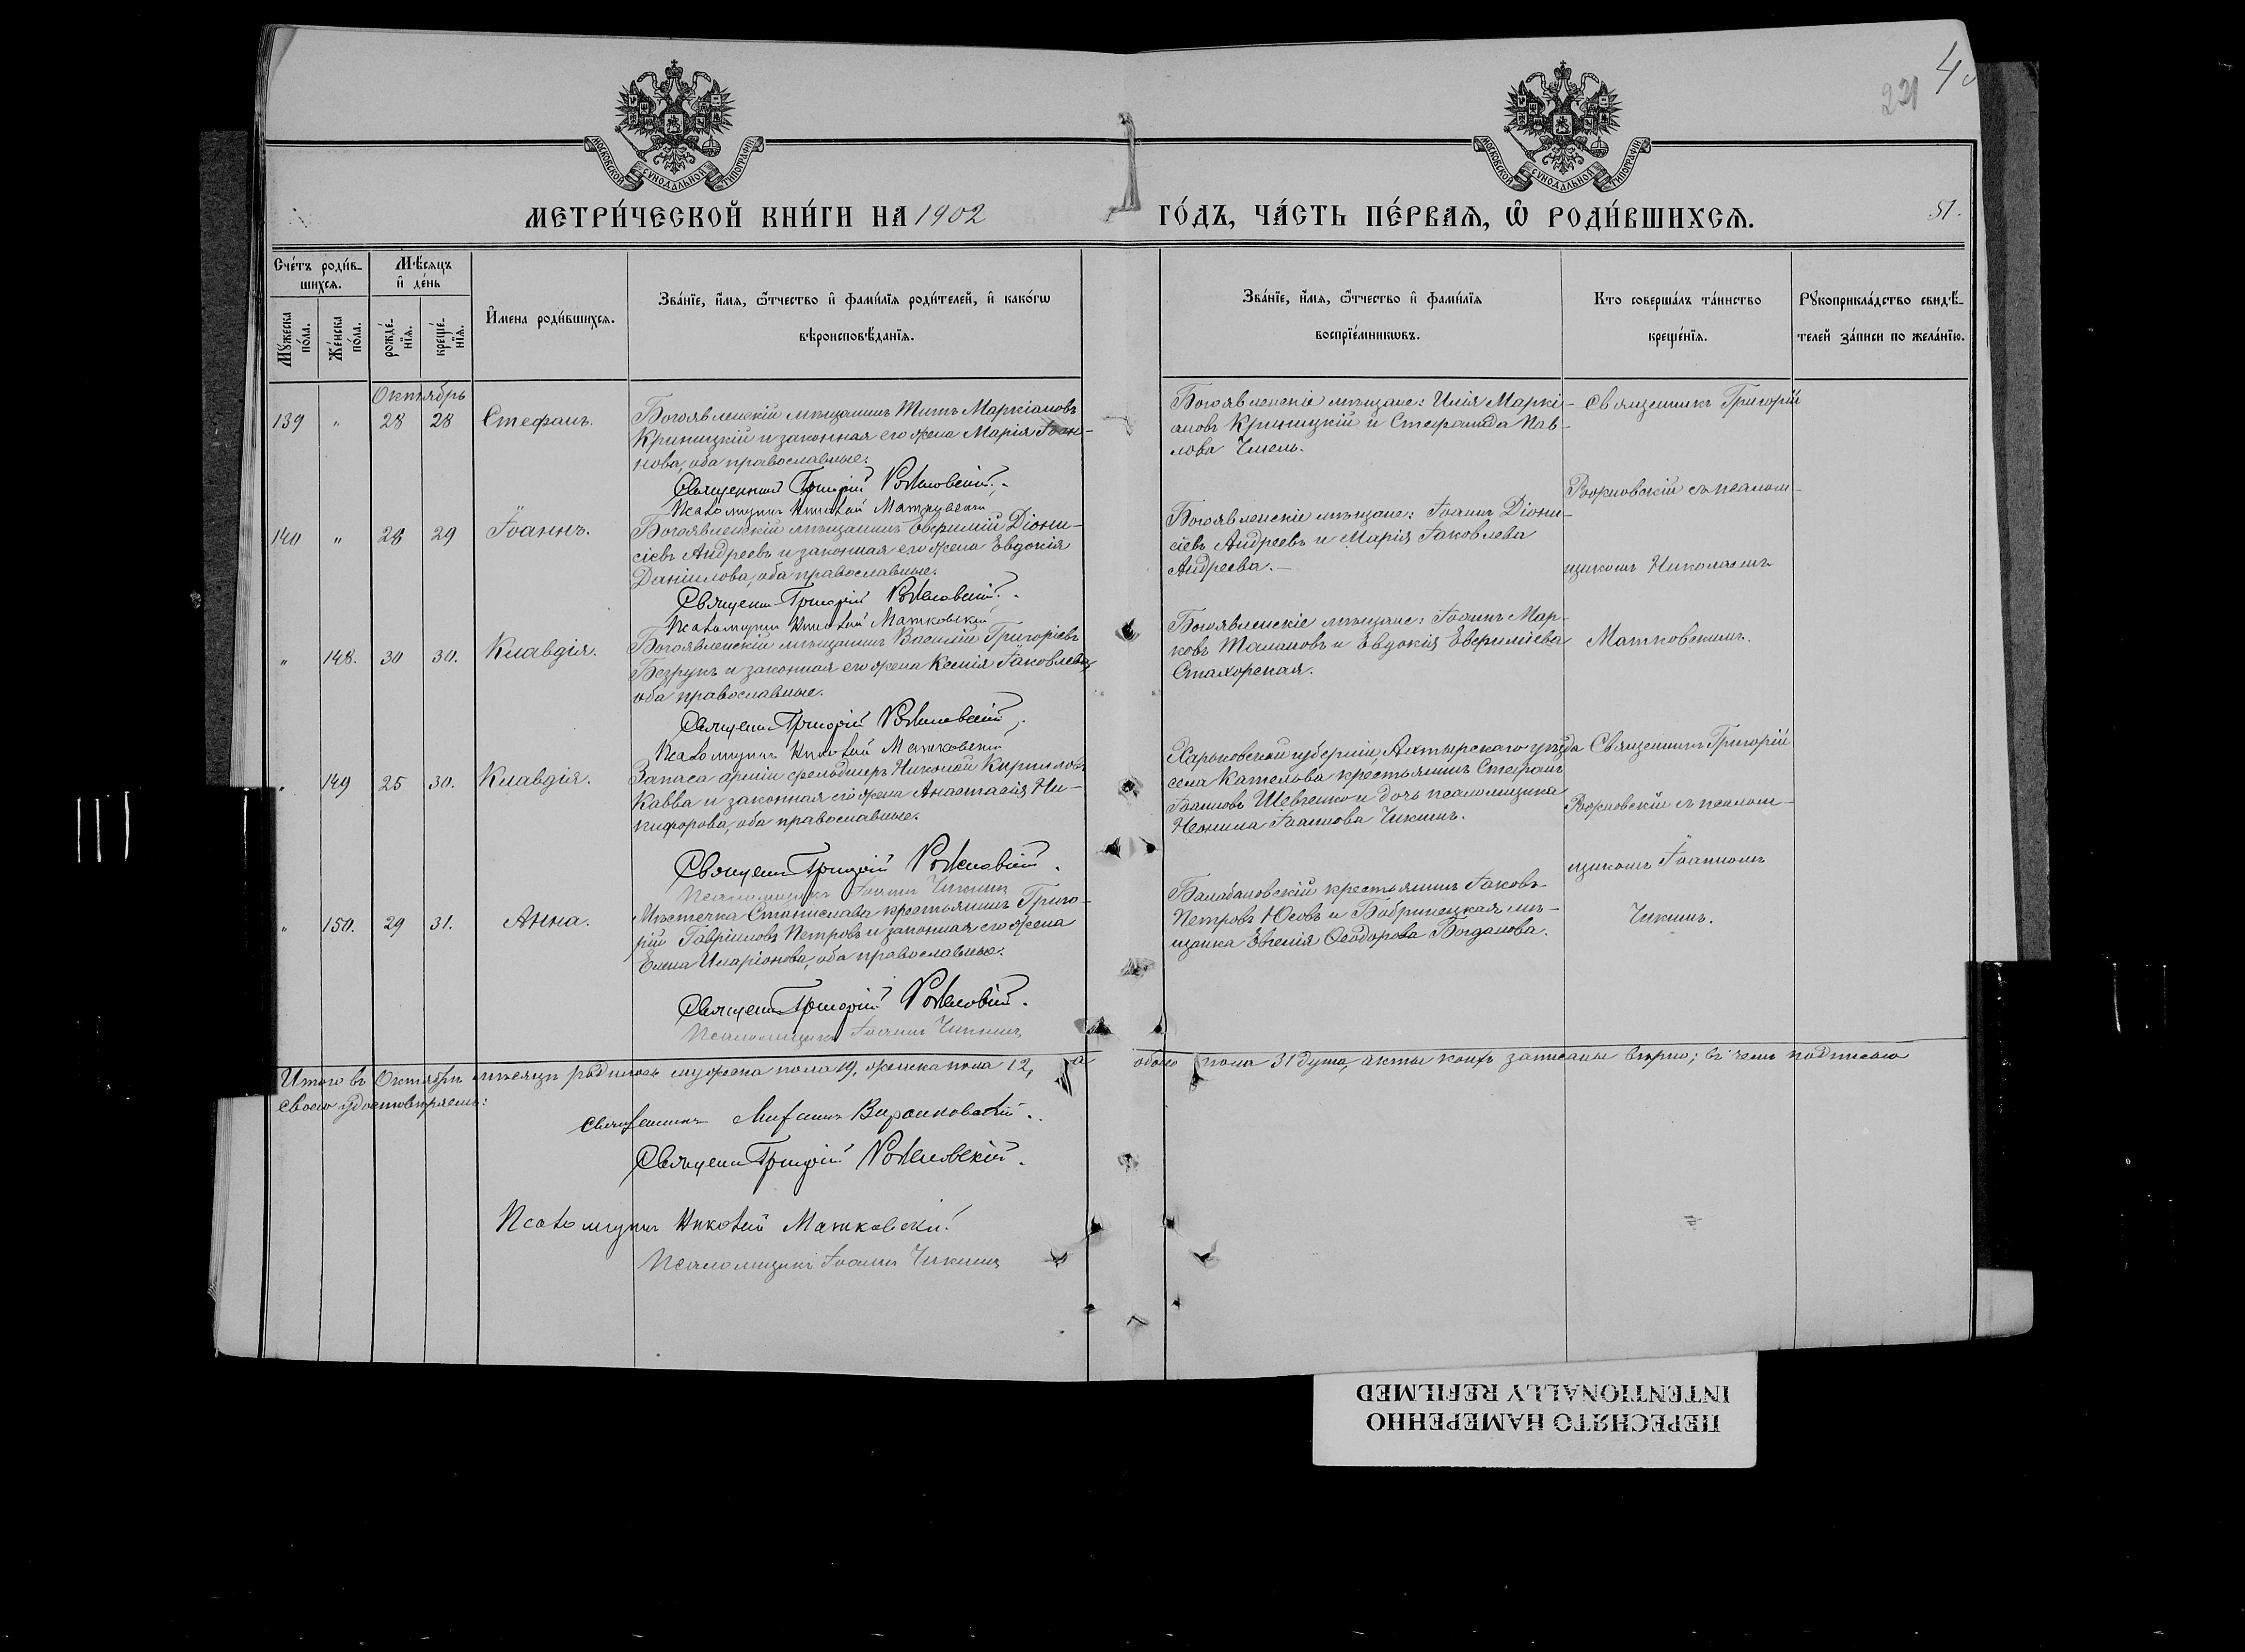 4
221
МОСКОВСКОЙ СѴНОДАЛЬНОЙ ТИПОГРАФІИ
МОСКОВСКОЙ СѴНОДАЛЬНОЙ ТИПОГРАФІИ
МЕТРИ́ЧЕСКОЙ КНИ́ГИ НА 1902
ГО́ДЪ, ЧА́СТЬ ПЕ́РВАѦ, Ѽ РОДИ́ВШИХСѦ.
51.
Сче́тъ роди́в-
шихсѧ.
Мѣ́сѧцъ
и҆ де́нь
Мꙋ́жеска по́ла.
Же́нска по́ла.
рожде́-
нїѧ.
креще́-
нїѧ.
И҆мена роди́вшихсѧ.
Зва́нїе, и҆́мѧ, ѻ҆́тчество и҆ фами́лїѧ роди́телей, и҆ како́гѡ
вѣроисповѣ́данїѧ.
Зва́нїе, и҆́мѧ, ѻ҆́тчество и҆ фами́лїѧ
воспрїе́мникѡвъ.
Кто совершáлъ та́инство
креще́нїѧ.
Рꙋкоприкла́дство свидѣ́-
телей за́писи по жела́нїю.
Октябрь
139 " 28 28 Стефанъ.
Богоявленскій мѣщанинъ Титъ Маркіановъ
Криницкій и законная его жена Марія Іоан-
нова, оба православные.
Священникъ Григорій Рожновскій.
Псаломщикъ Николай Матковскій
Богоявленскіе мѣщане: Илія Маркі-
ановъ Криницкій и Стефанида Пав-
лова Чмель.
Священникъ Григорій
Рожновскій съ псалом-
щикомъ Николаемъ
Матковскимъ.
140 " 28 29 Іоаннъ.
Богоявленскій мѣщанинъ Евфимій Діони-
сіевъ Андреевъ и законная его жена Евдокія
Даніилова, оба православные.
Священникъ Григорій Рожновскій.
Псаломщикъ Николай Матковскій
Богоявленскіе мѣщане: Іоаннъ Діони-
сіевъ Андреевъ и Марія Іаковлева
Андреева.
" 148. 30 30. Клавдія.
Богоявленскій мѣщанинъ Василій Григоріевъ
Безрукъ и законная его жена Ксенія Іаковлева,
оба православные.
Священникъ Григорій Рожновскій.
Псаломщикъ Николай Матковскій
Богоявленскіе мѣщане: Іоаннъ Мар-
ковъ Талановъ и Евдокія Евфиміева
Стахорская.
" 149 25 30. Клавдія.
Запаса арміи фельдшеръ Николай Кирилловъ
Кавва и законная его жена Анастасія Ни-
кифорова, оба православные.
Священникъ Григорій Рожновскій.
Псаломщикъ Іоаннъ Чикинъ
Харьковской губерніи, Ахтырскаго уѣзда
села Кательва крестьянинъ Стефанъ
Іоанновъ Шевченко и дочь псаломщика
Неонила Іоаннова Чикинъ.
Священникъ Григорій
Рожновскій съ псалом-
щикомъ Іоанномъ
Чикинъ.
" 150. 29 31. Анна.
Мѣстечка Станислава крестьянинъ Григо-
рій Гавріиловъ Петровъ и законная его жена
Елена Иларіонова, оба православные.
Священникъ Григорій Рожновскій.
Псаломщикъ Іоаннъ Чикинъ
Балабановскій крестьянинъ Іаковъ
Петровъ Юсовъ и Бобринецкая мѣ-
щанка Евгенія Ѳеодорова Богданова.
Итого въ Октябрѣ мѣсяцѣ родилось мужеска пола 19, женска пола 12, а обоего пола 31 душа, акты коихъ записаны вѣрно; въ чемъ подписью
своею удостовѣряемъ:
Священникъ
Священникъ Григорій Рожновскій.
Псаломщикъ Николай Матковскій
Псаломщикъ Іоаннъ Чикинъ
ПЕРЕСНЯТО НАМЕРЕННО
INTENTIONALLY REFILMED